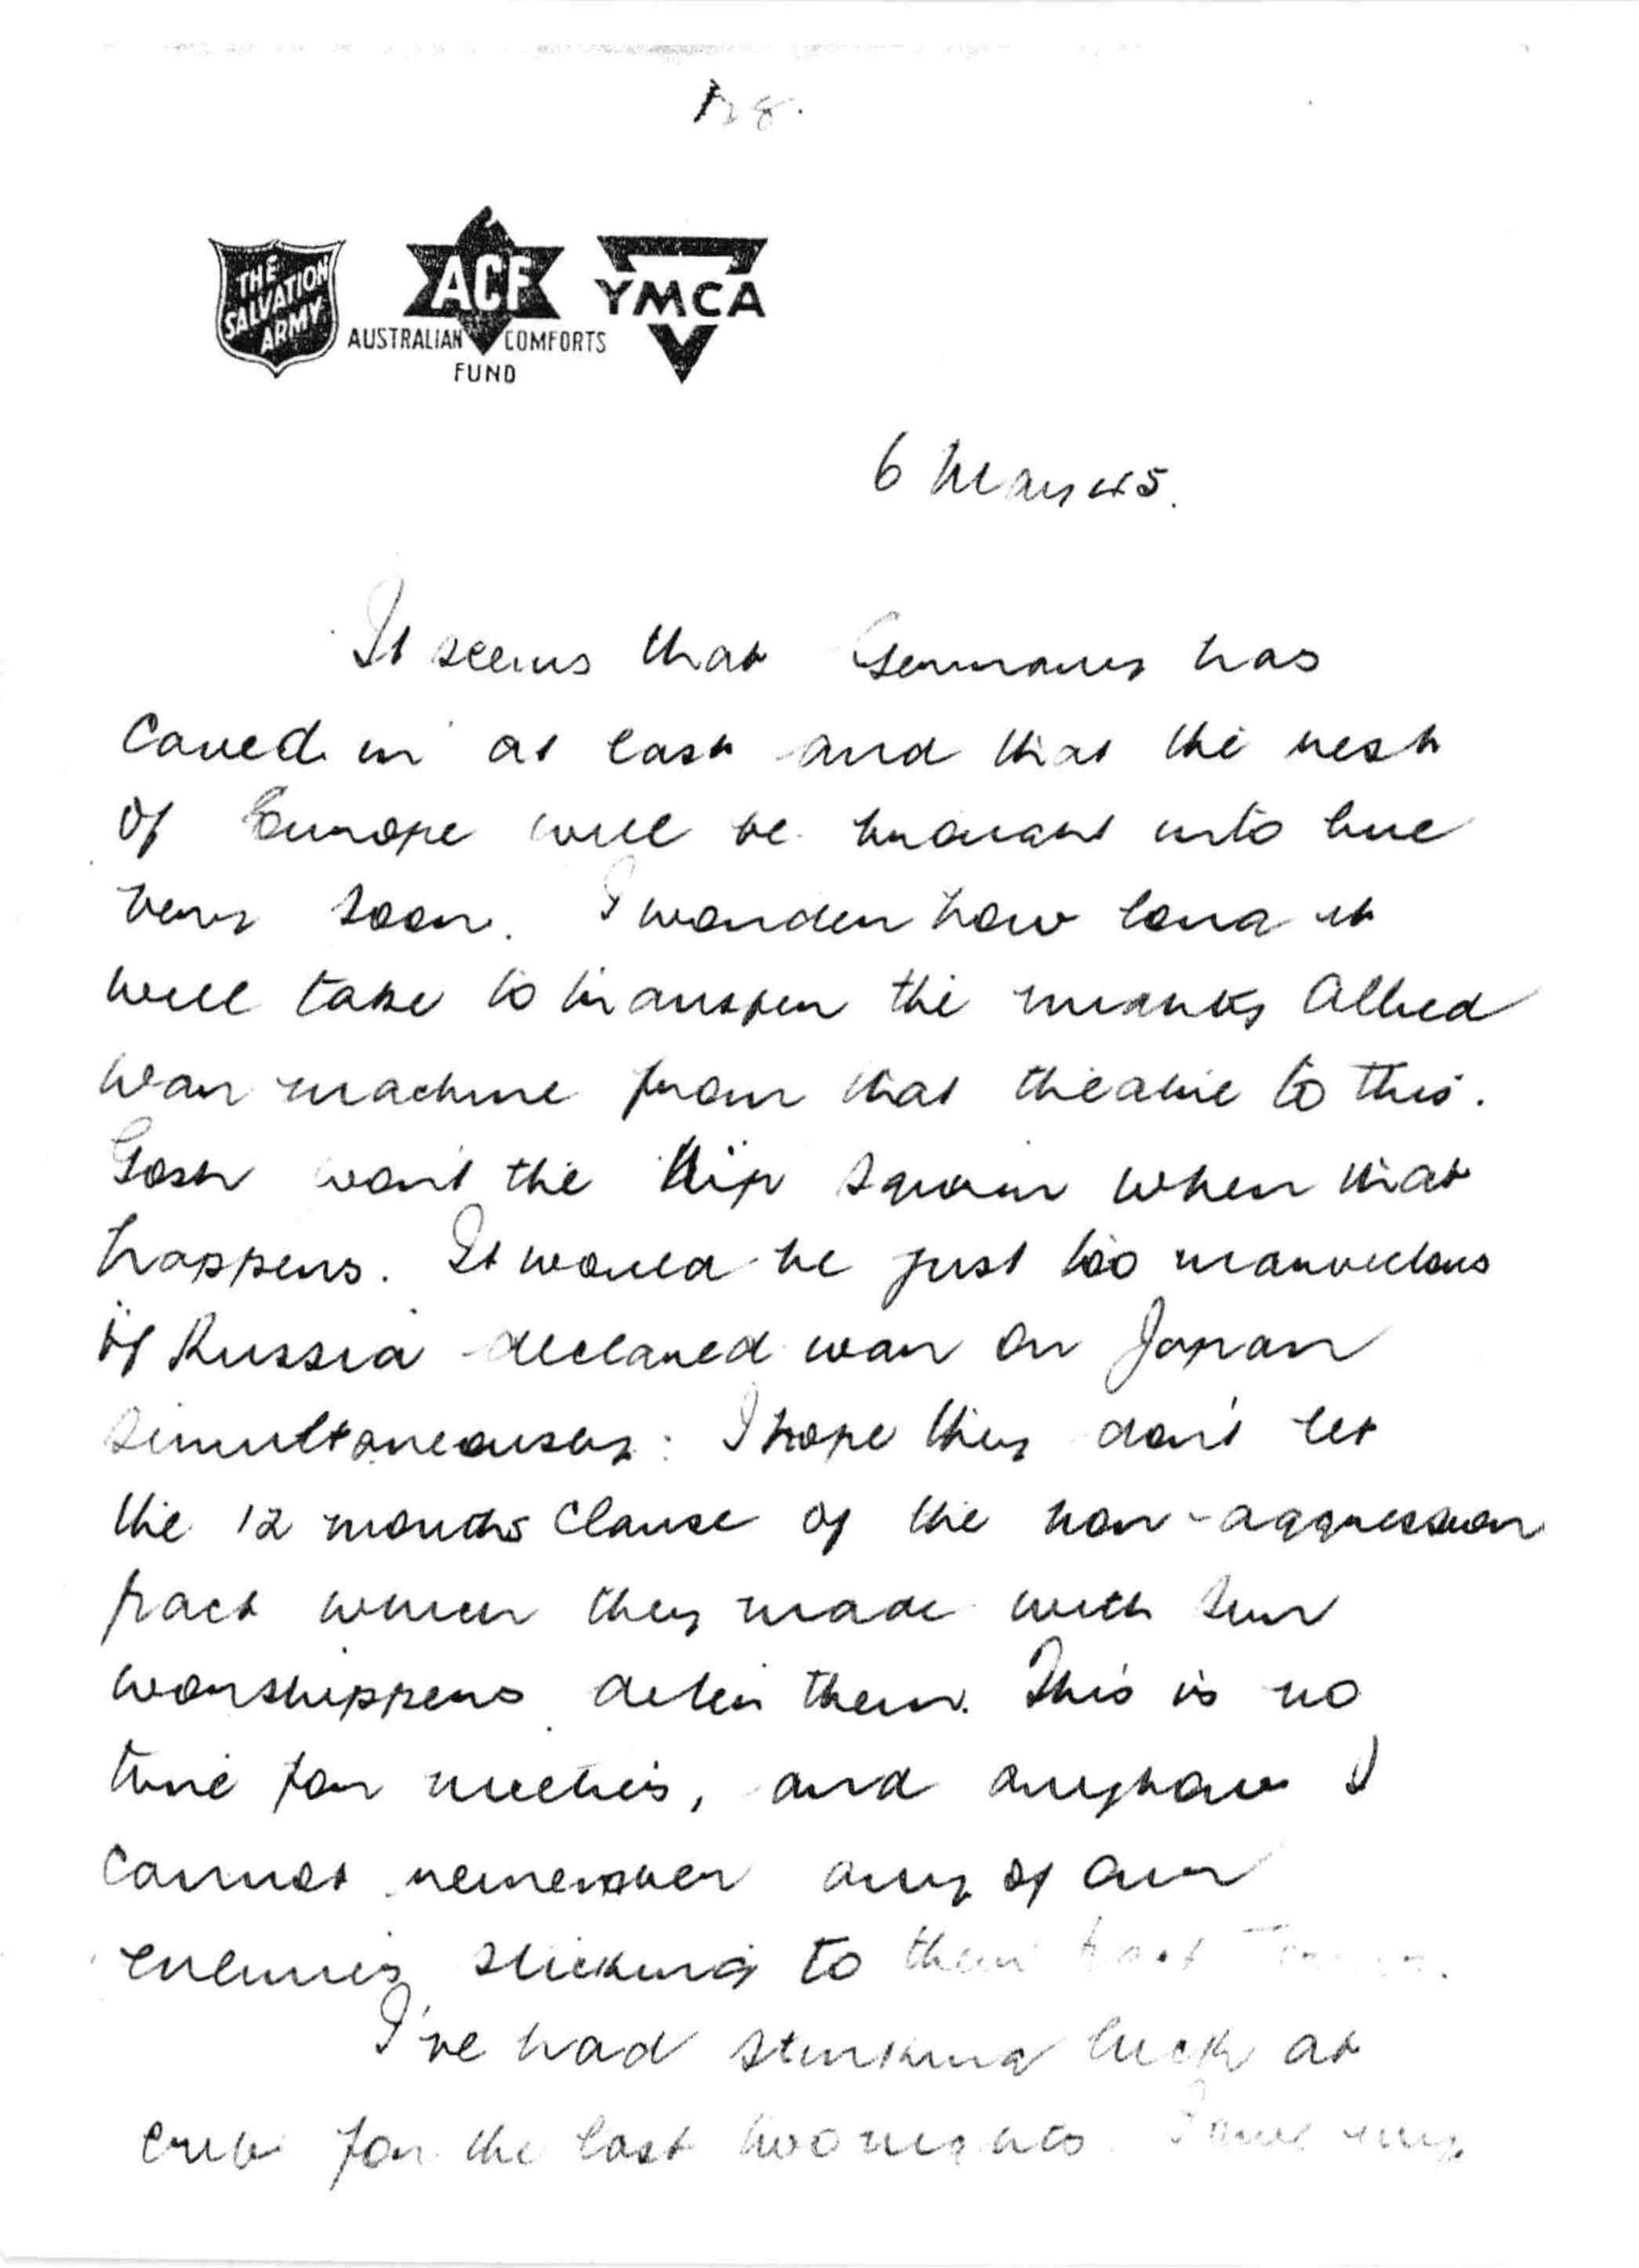 THE
SALVATION
ARMY
ACF
AUSTRALIAN COMFORTS
FUND
YMCA
6 May 45.
It seems that Germany has
caved in at last and that the rest
of Europe will be brought into line
very soon. I wonder how long it
will take to transfer the mighty Allied
war machine from that theatre to this.
Gosh won't the Nip squirm when that
happens. It would be just too marvellous
if Russia declared war on Japan
simultaneously: I hope they don't let
the 12 months clause of the non-aggression
pact which they made with sun
worshippers deter them. This is no
time for niceties, and anyhow I
cannot remember any of our
enemies sticking to their pact
I've had stinking luck at
crib for the last two nights.